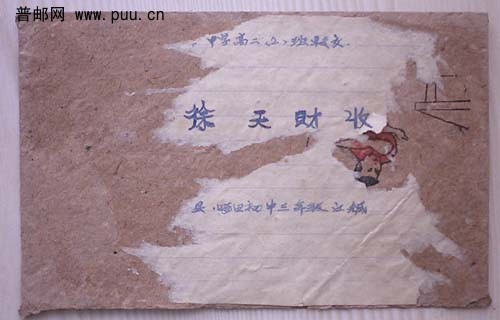 普邮网 www.puu.cn
中学高二（2）班
徐天财收
县 初中三年级江缄